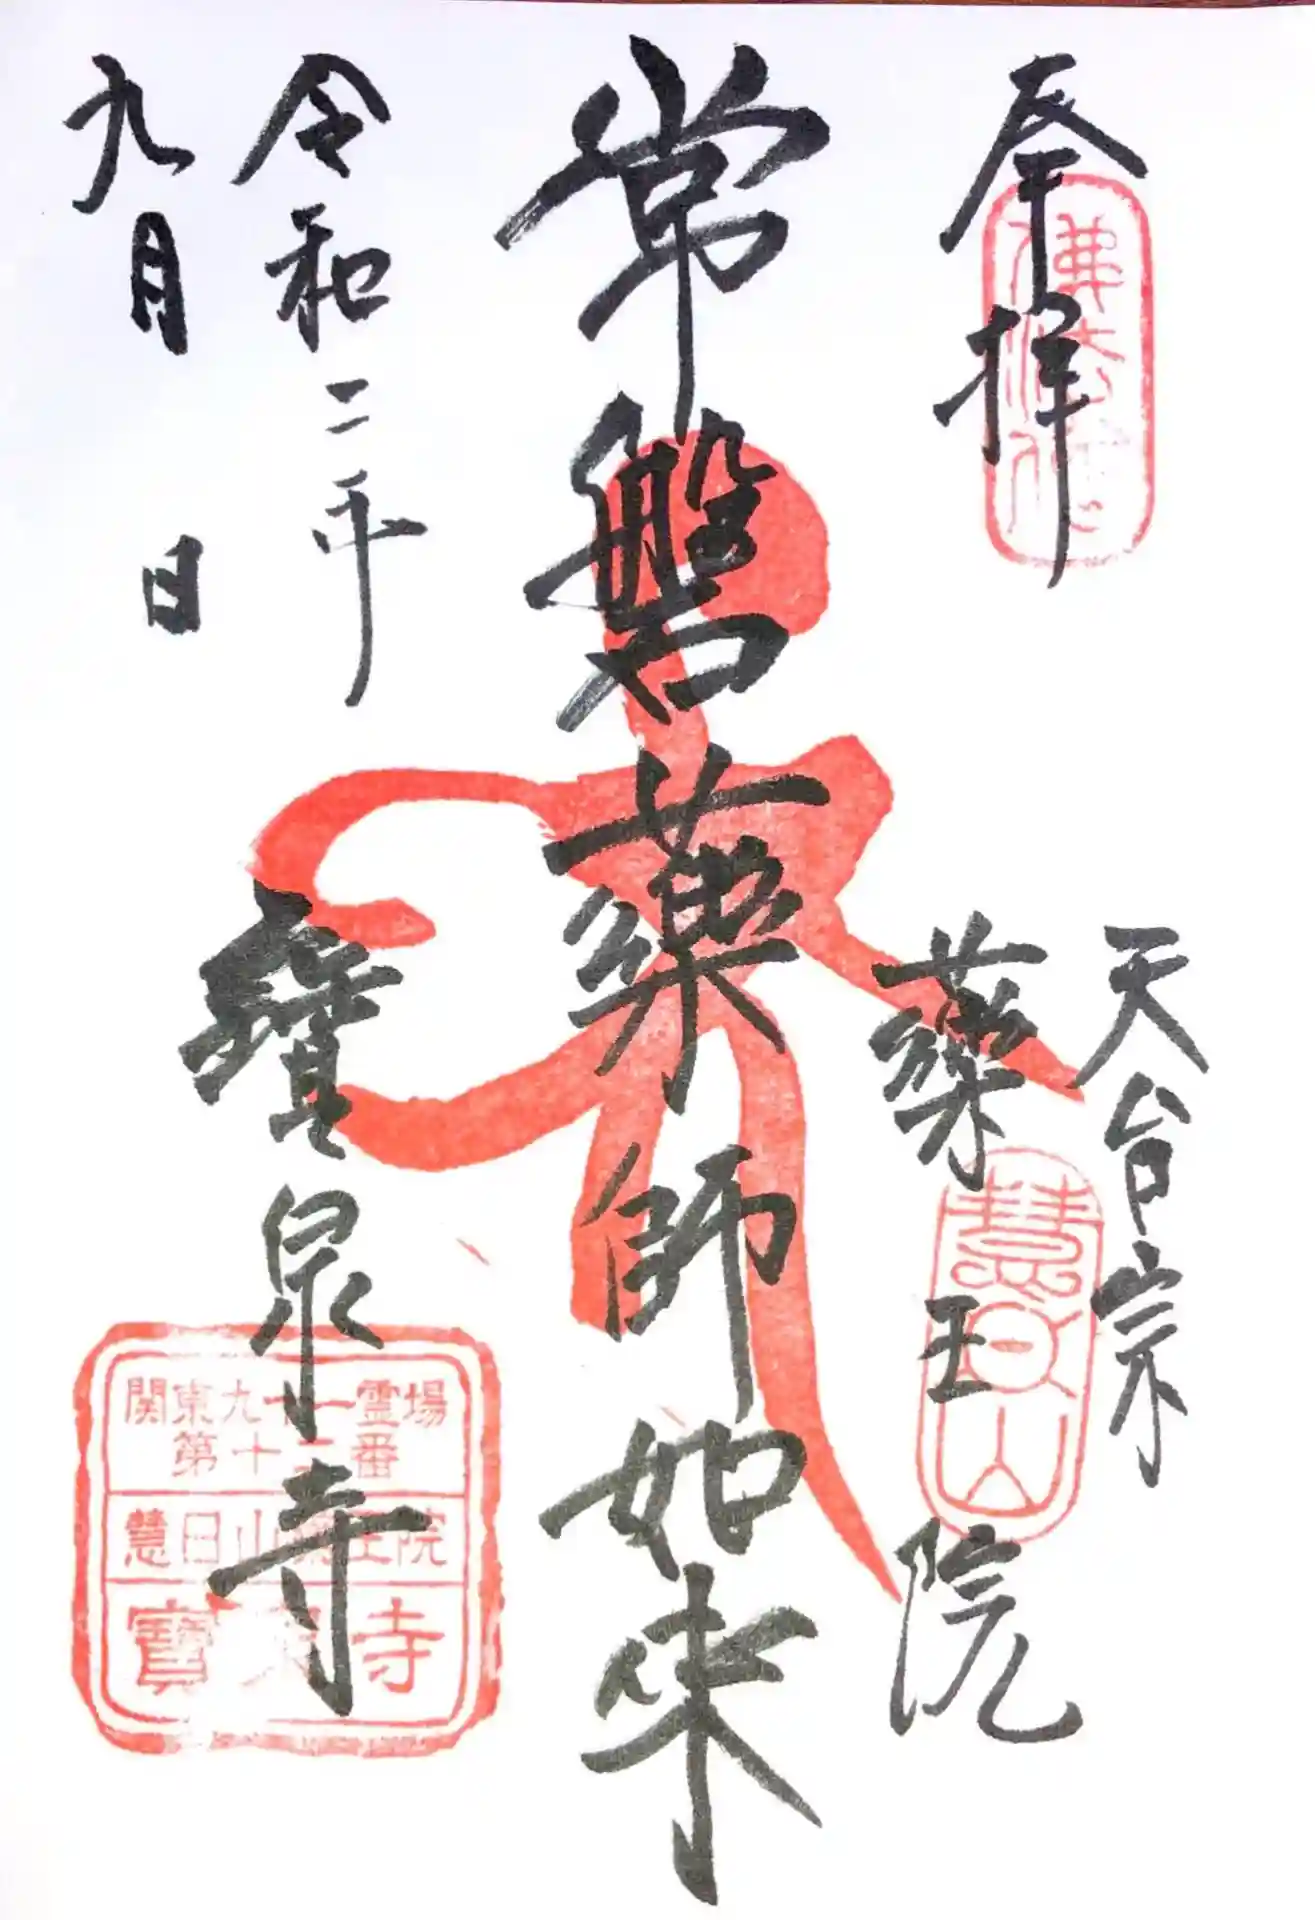 奉拝
天台宗
薬王院
慧日山
常磐薬師如来
令和二年
九月 日
寳泉寺
関東九十一霊場
第十二番
慧日山薬王院
寳泉寺